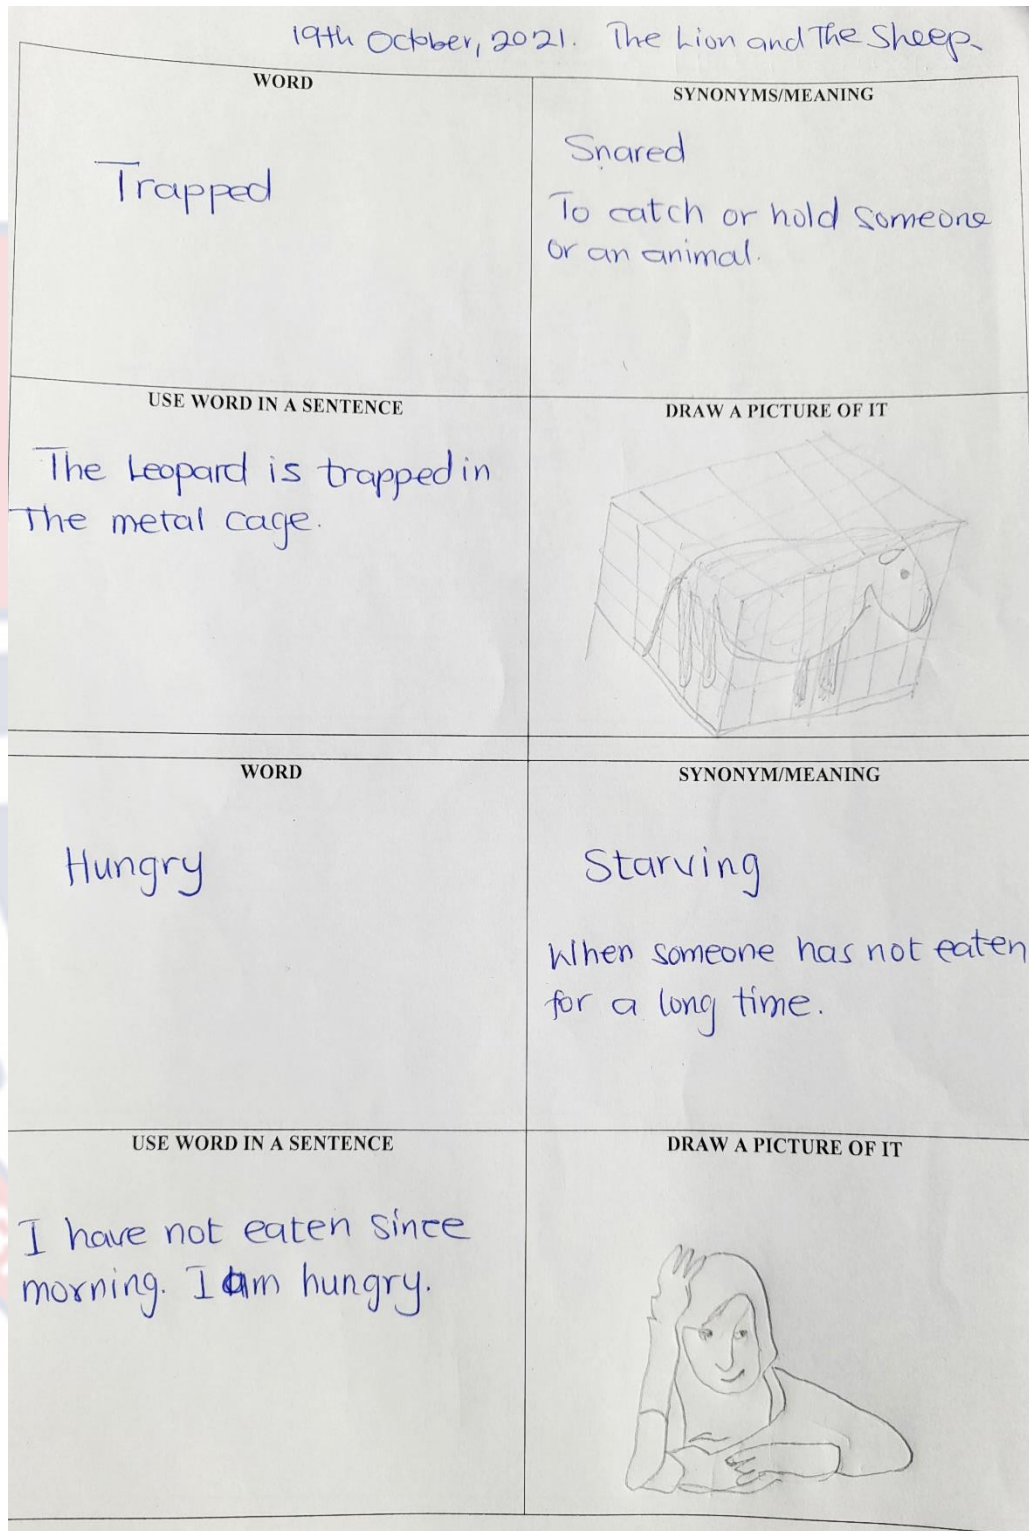 19th October, 2021. The Lion and The Sheep.
WORD
SYNONYMS/MEANING
Trapped
Snared
To catch or hold someone
or an animal.
USE WORD IN A SENTENCE
DRAW A PICTURE OF IT
The Leopard is trapped in
The metal cage.
WORD
SYNONYM/MEANING
Hungry
Starving
When someone has not eaten
for a long time.
USE WORD IN A SENTENCE
DRAW A PICTURE OF IT
I have not eaten since
morning. I am hungry.